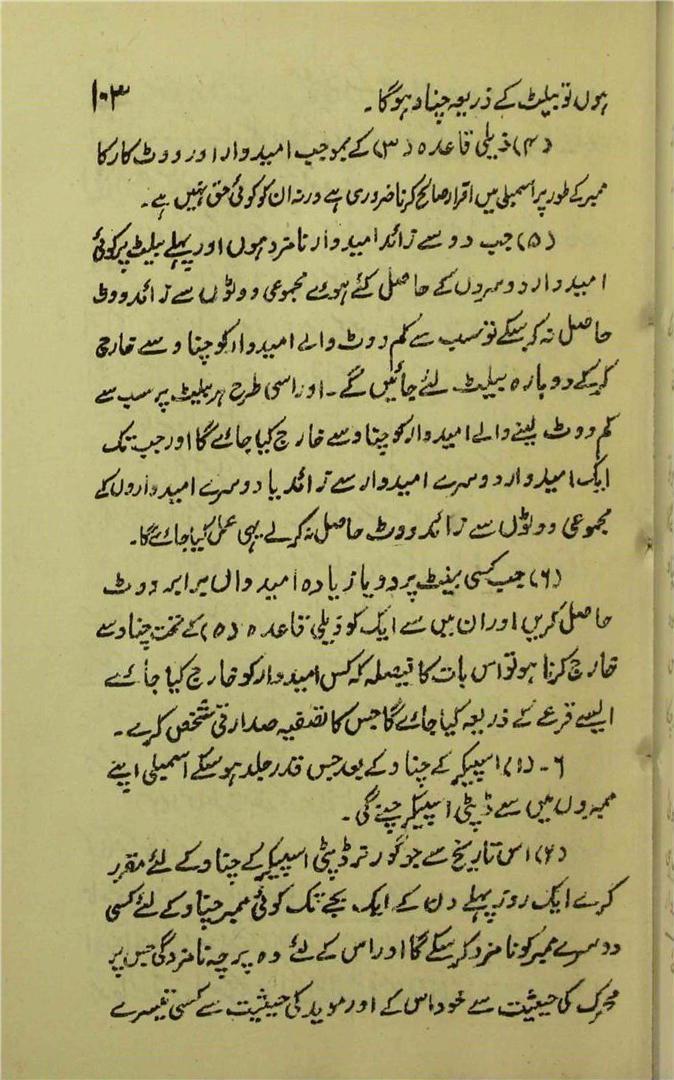 ۱۰۳
ہوں تو بیلٹ کے ذریعہ چناو ہوگا۔
(۴) ذیلی قاعدہ (۳) کے بموجب امیدوار اور ووٹ کار کا
ممبر کے طور پر اسمبلی میں اقرار صالح کرنا ضروری ہے ورنہ ان کو کوئی حق نہیں ہے۔
(۵) جب دو سے زائد امیدوار نامزد ہوں اور پہلے بیلٹ پر کوئی
امیدوار دوسروں کے حاصل کئے ہوے مجموعی ووٹوں سے زائد ووٹ
حاصل نہ کرسکے تو سب سے کم ووٹ والے امیدوار کو چناو سے خارج
کرکے دوبارہ بیلٹ لئے جائیں گے۔ اور اسی طرح ہر بیلٹ پر سب سے
کم ووٹ لینے والے امیدوار کو چناو سے خارج کیا جائے گا اور جب تک
ایک امیدوار دوسرے امیدوار سے زائد یا دوسرے امیدواروں کے
مجموعی ووٹوں سے زائد ووٹ حاصل نہ کرلے یہی عمل کیا جائے گا۔
(۶) جب کسی بیلٹ پر دو یا زیادہ امیدواں برابر ووٹ
حاصل کریں اور ان میں سے ایک کو ذیلی قاعدہ (۵) کے تحت چناو سے
خارج کرنا ہو تو اس بات کا فیصلہ کہ کس امیدوار کو خارج کیا جائے
ایسے قرعے کے ذریعہ کیا جائے گا جس کا تصفیہ صدارتی شخص کرے۔
۶۔ (۱) اسپیکر کے چناو کے بعد جس قدر جلد ہوسکے اسمبلی اپنے
ممبروں میں سے ڈپٹی اسپیکر چنے گی۔
(۲) اس تاریخ سے جو گورنر ڈپٹی اسپیکر کے چناو کے لئے مقرر
کرے ایک روز پہلے دن کے ایک بجے تک کوئی ممبر چناو کے لئے کسی
دوسرے ممبر کو نامزد کرسکے گا اور اس کے لئے وہ پرچہ نامزدگی جس پر
محرک کی حیثیت سے خود اس کے اور موید کی حیثیت سے کسی تیسرے